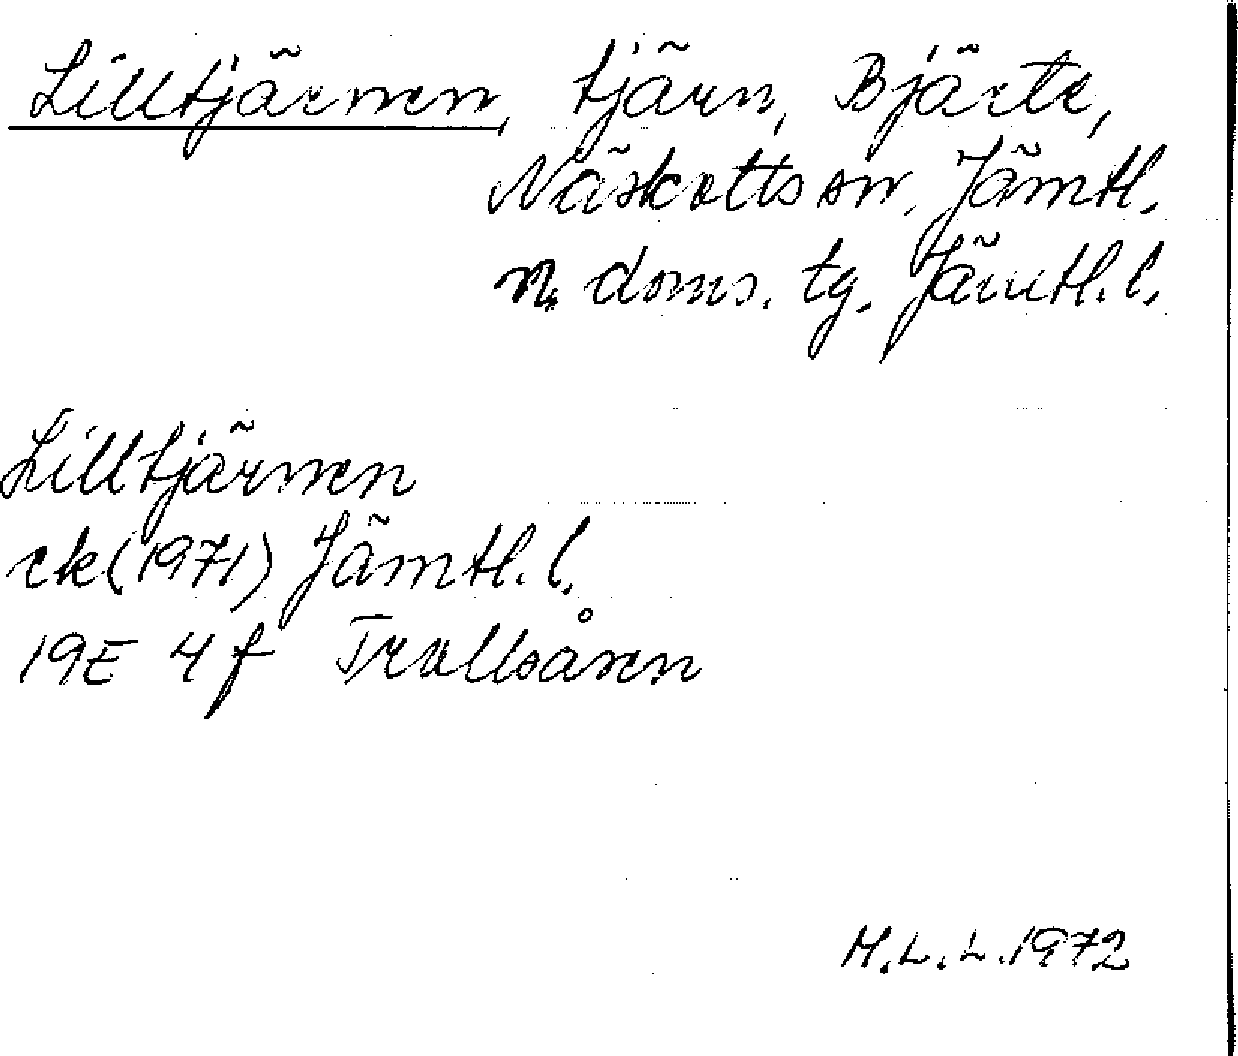 Lilltjärnen, tjärn, Bjärte,
Näskotts sn, Jämtl.
n. doms. tg. Jämtl. l.
Lilltjärnen
ek (1971) Jämtl. l.
19E 4 f Trollsåsen
M.L.L. 1972